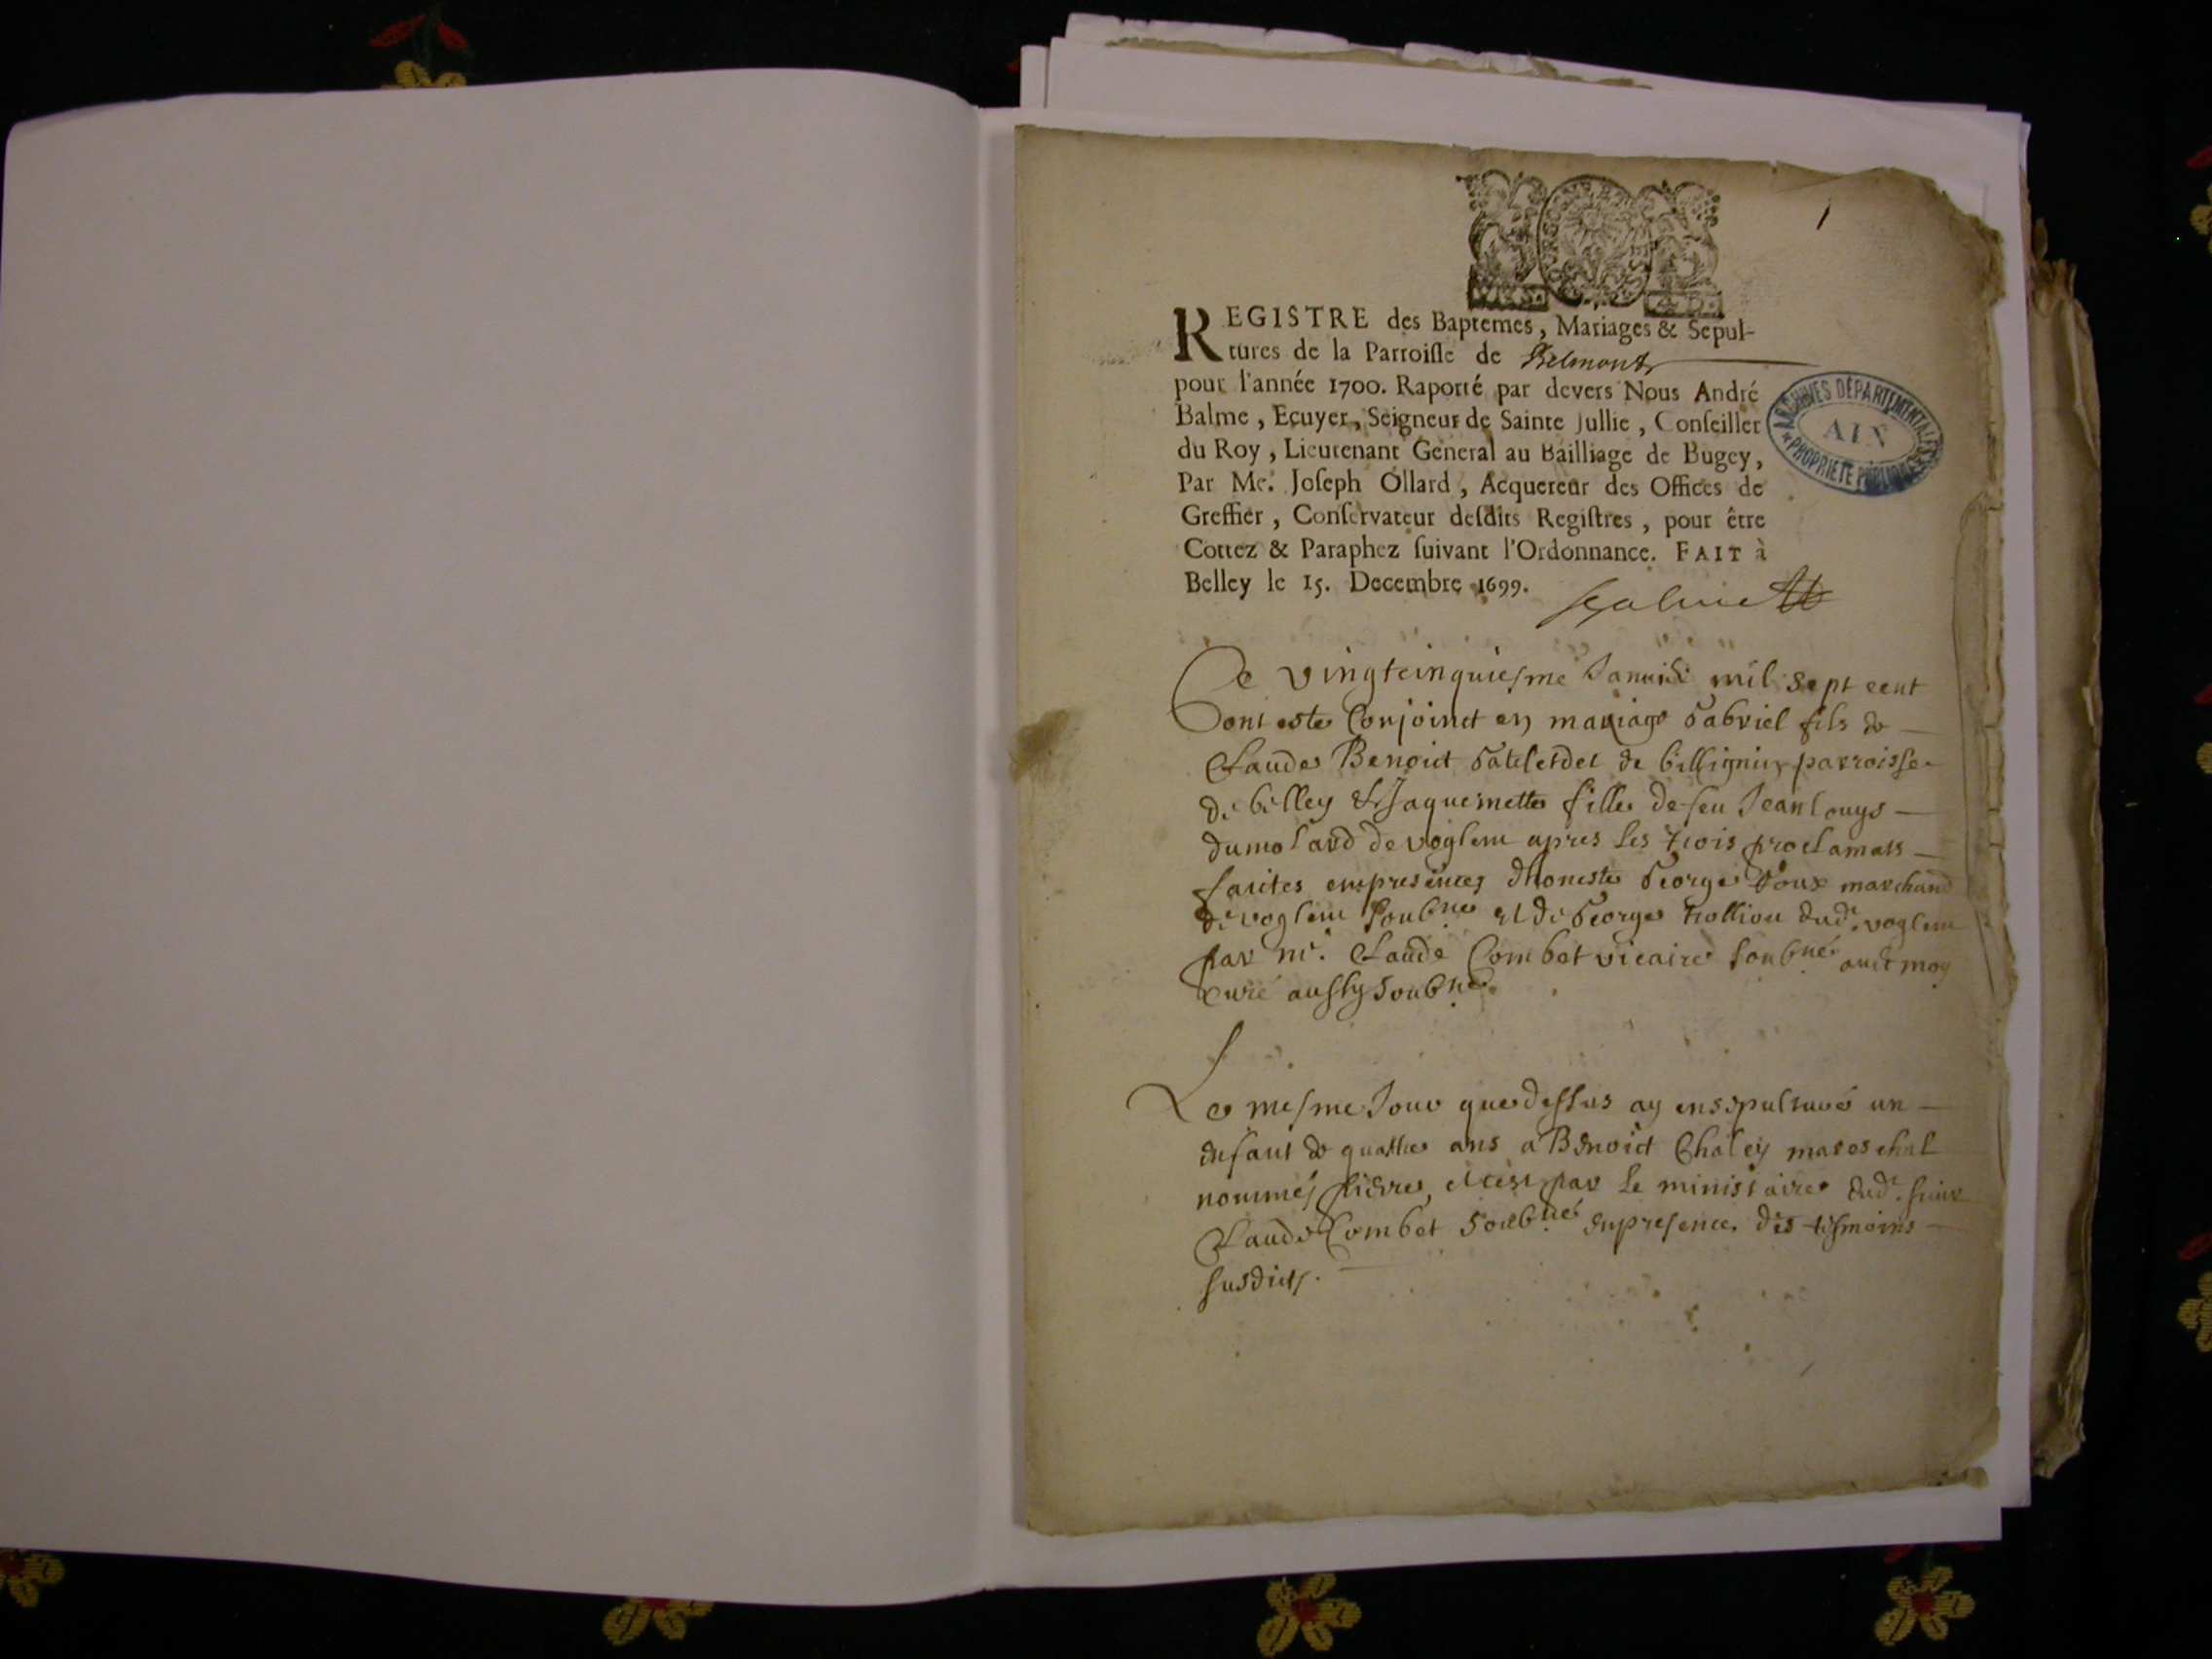 1
REGISTRE des Baptemes, Mariages & Sepul-
tures de la Parroisse de Belmont
pour l'année 1700. Raporté par devers Nous André
Balme, Ecuyer, Seigneur de Sainte Jullie, Conseiller
du Roy, Lieutenant General au Bailliage de Bugey,
Par Me. Joseph Ollard, Acquereur des Offices de
Greffier, Conservateur desdits Registres, pour être
Cottez & Paraphez suivant l'Ordonnance. FAIT à
Belley le 15. Decembre 1699.
ARCHIVES DÉPARTEMENTALES
AIN
PROPRIÉTÉ PUBLIQUE
Ce vingtcinquiesme Janvier mil sept cent
ont este Conjoinct en mariage Gabriel fils de
Claude Benoict de billignin parroisse
de billey & Jaquemette fille de feu Jean louys
dumolard de voglem apres les trois proclamats
faites en presences dhoneste George Roux marchand
de voglem soubné et de George trollion dud. voglem
par mr. Claude Combet vicaire soubné avec moy
curé aussy soubné
Le mesme Jour que dessus ay ensepulturé un
enfant de quattre ans a Benoict Chaley mareschal
nommé pierre, et cest par le ministaire dud. sieur
Claude Combet soubné en presence des tesmoins
susdicts.